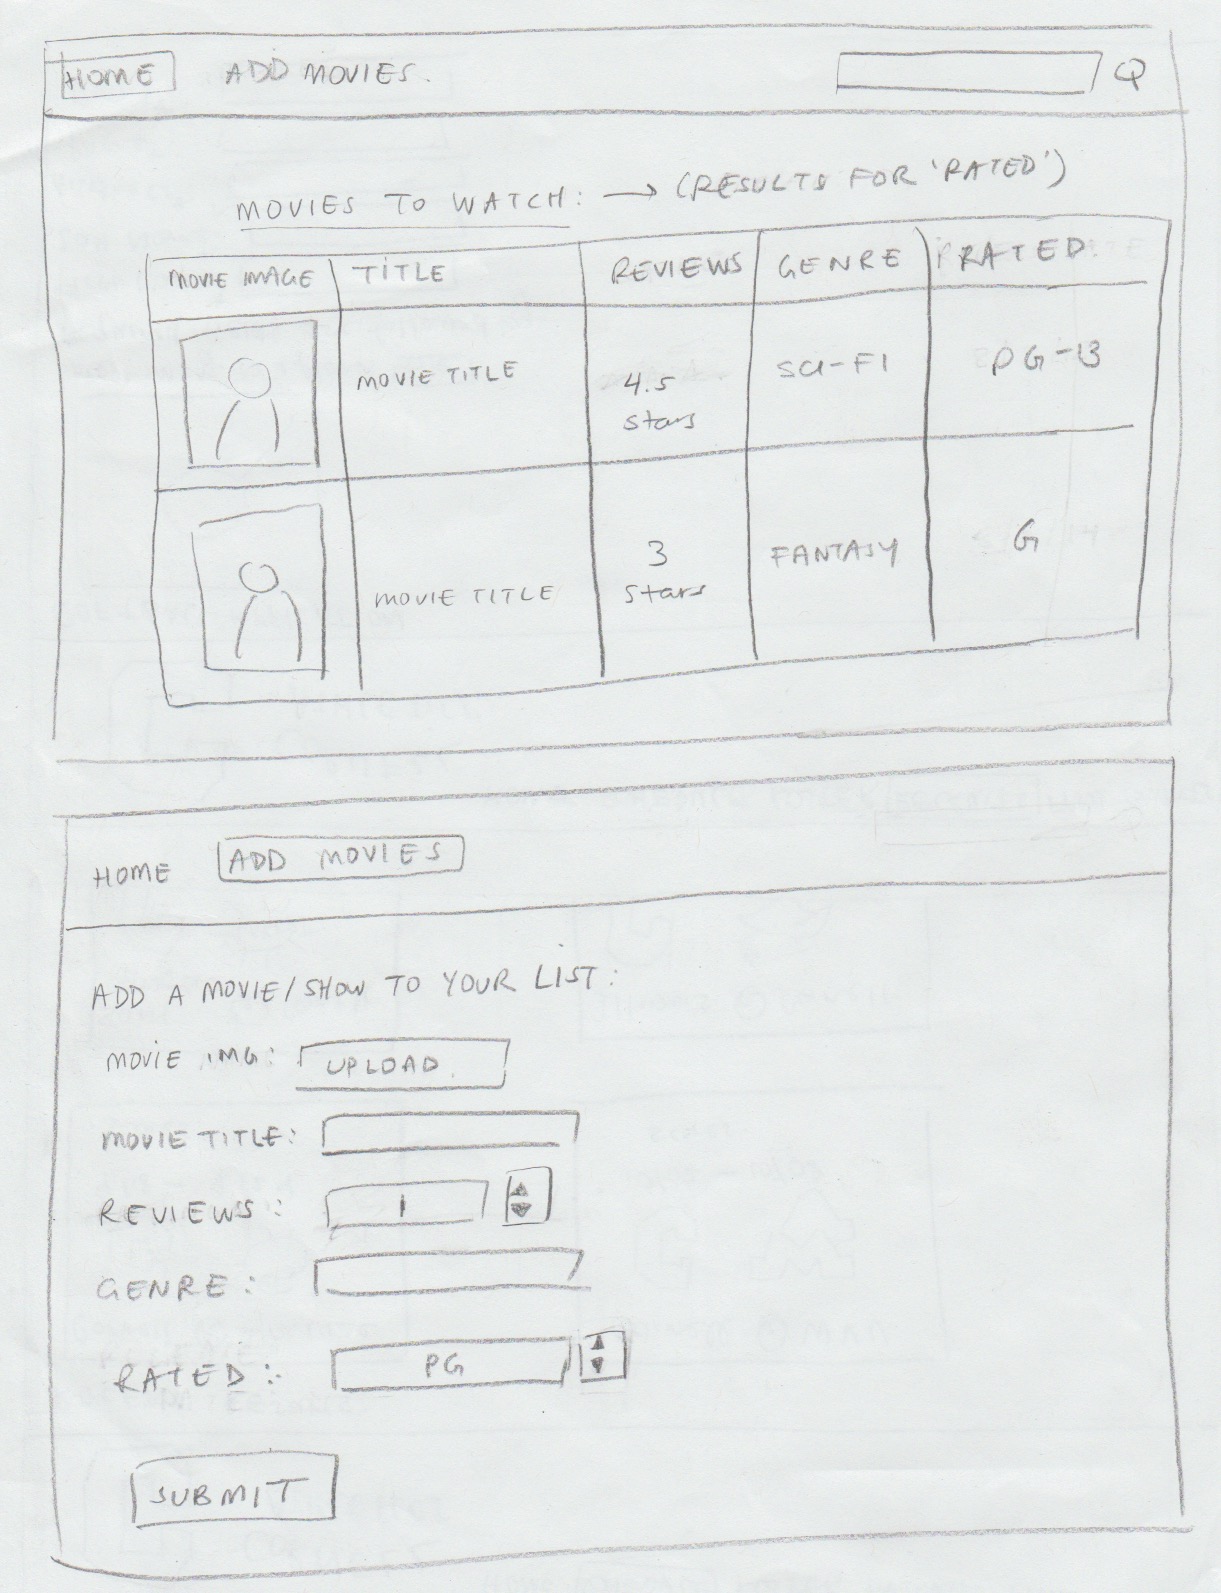 HOME ADD MOVIES.
MOVIES TO WATCH: → (RESULTS FOR 'RATED')
MOVIE IMAGE TITLE REVIEWS GENRE RATED
MOVIE TITLE 4.5 stars SCI-FI PG-13
MOVIE TITLE 3 stars FANTASY G
HOME ADD MOVIES
ADD A MOVIE/SHOW TO YOUR LIST:
MOVIE IMG: UPLOAD
MOVIE TITLE:
REVIEWS: 1
GENRE:
RATED: PG
SUBMIT